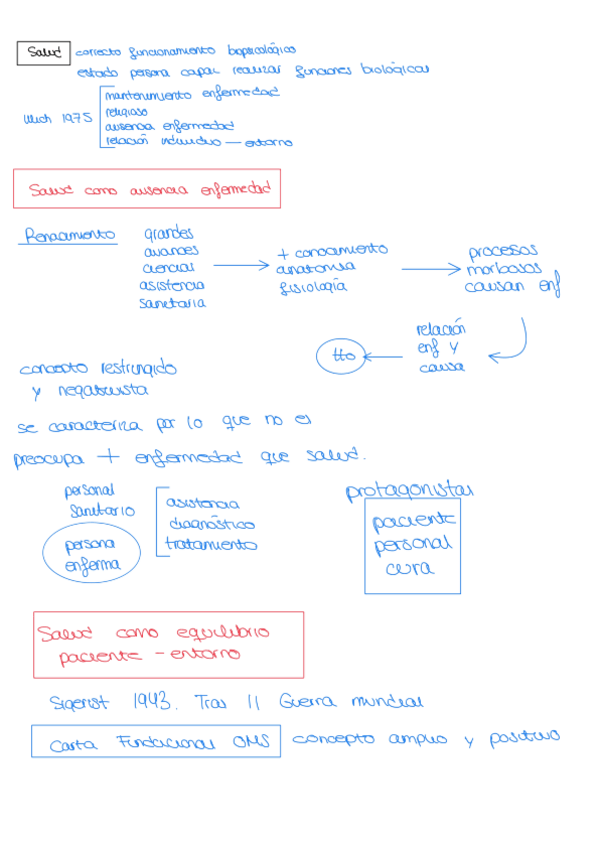 Salud correcto funcionamiento biopsicológico
estado persona capaz realizar funciones biológicas
Illich 1975
mantenimiento enfermedad
religioso
ausencia enfermedad
relación individuo — entorno
Salud como ausencia enfermedad
Pensamiento
grandes
avances
ciencias
asistencia
sanitaria
+ conocimiento
anatomía
fisiología
procesos
morbosos
causan enf
relación
enf y
causa
tto
concepto restringido
y negativista
se caracteriza por lo que no es
preocupa + enfermedad que salud.
personal
sanitario
persona
enferma
asistencia
diagnóstico
tratamiento
protagonistas
paciente
personal
cura
Salud como equilibrio
paciente - entorno
Sigerist 1943. Tras II Guerra mundial
Carta Fundacional OMS concepto amplio y positivo